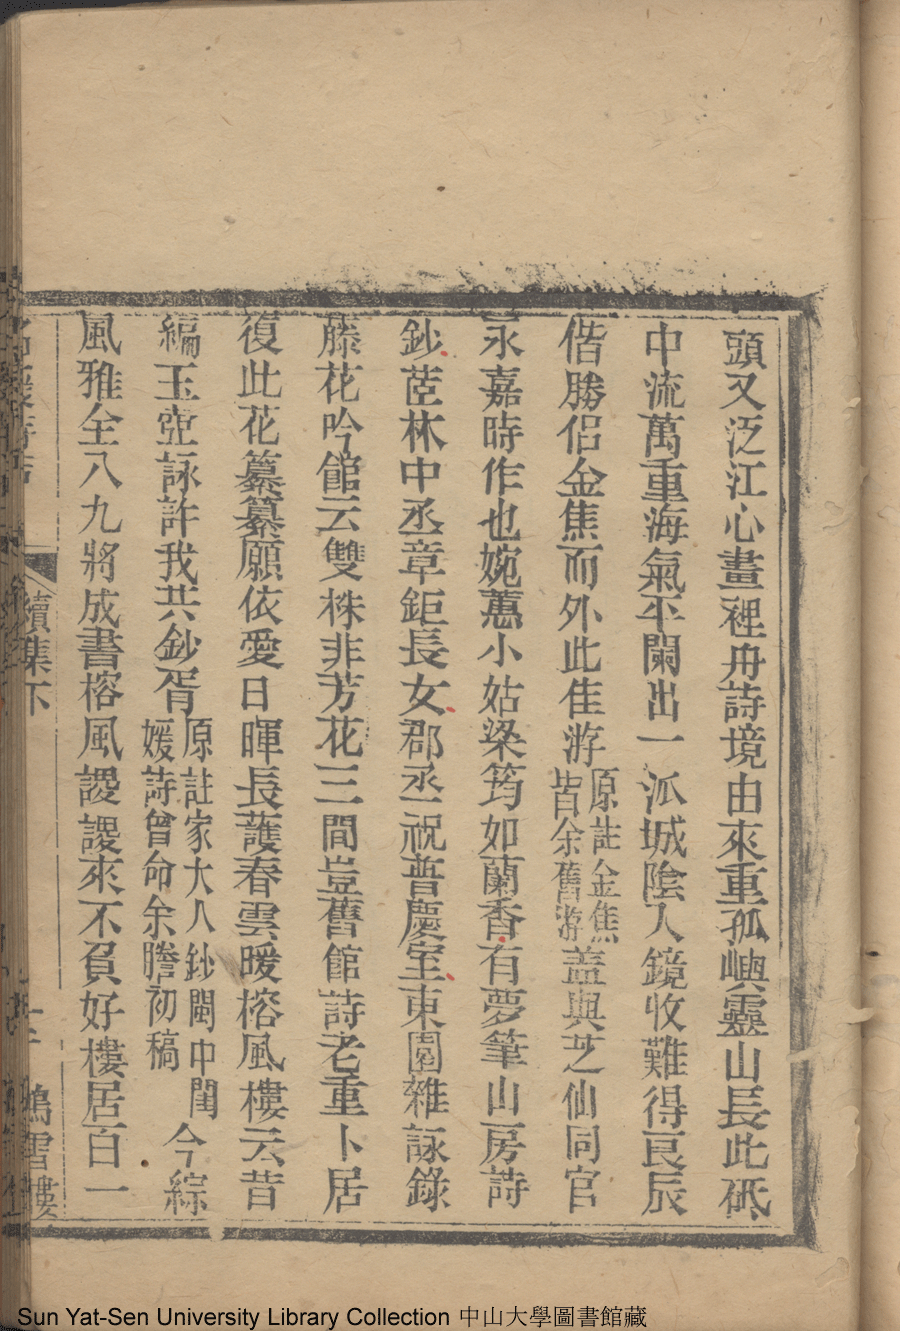 頭又泛江心畫裡舟詩境由來重孤嶼靈山長此砥
中流萬重海氣平闌出一派城陰入鏡收難得良辰
偕勝侶金焦而外此佳游原註金焦皆余舊游蓋與芝仙同官
永嘉時作也婉蕙小姑梁筠如蘭香有夢筆山房詩
鈔茝林中丞章鉅長女郡丞祝普慶室東園雜詠錄
藤花吟館云雙株非芳花三間豈舊館詩老重卜居
復此花纂纂願依愛日暉長護春雲暖榕風樓云昔
編玉壺詠許我共鈔胥原註家大人鈔閩中閨媛詩曾命余謄初稿今綜
風雅全八九將成書榕風謖謖來不負好樓居百一
續集下
鴻雪樓
Sun Yat-Sen University Library Collection 中山大學圖書館藏